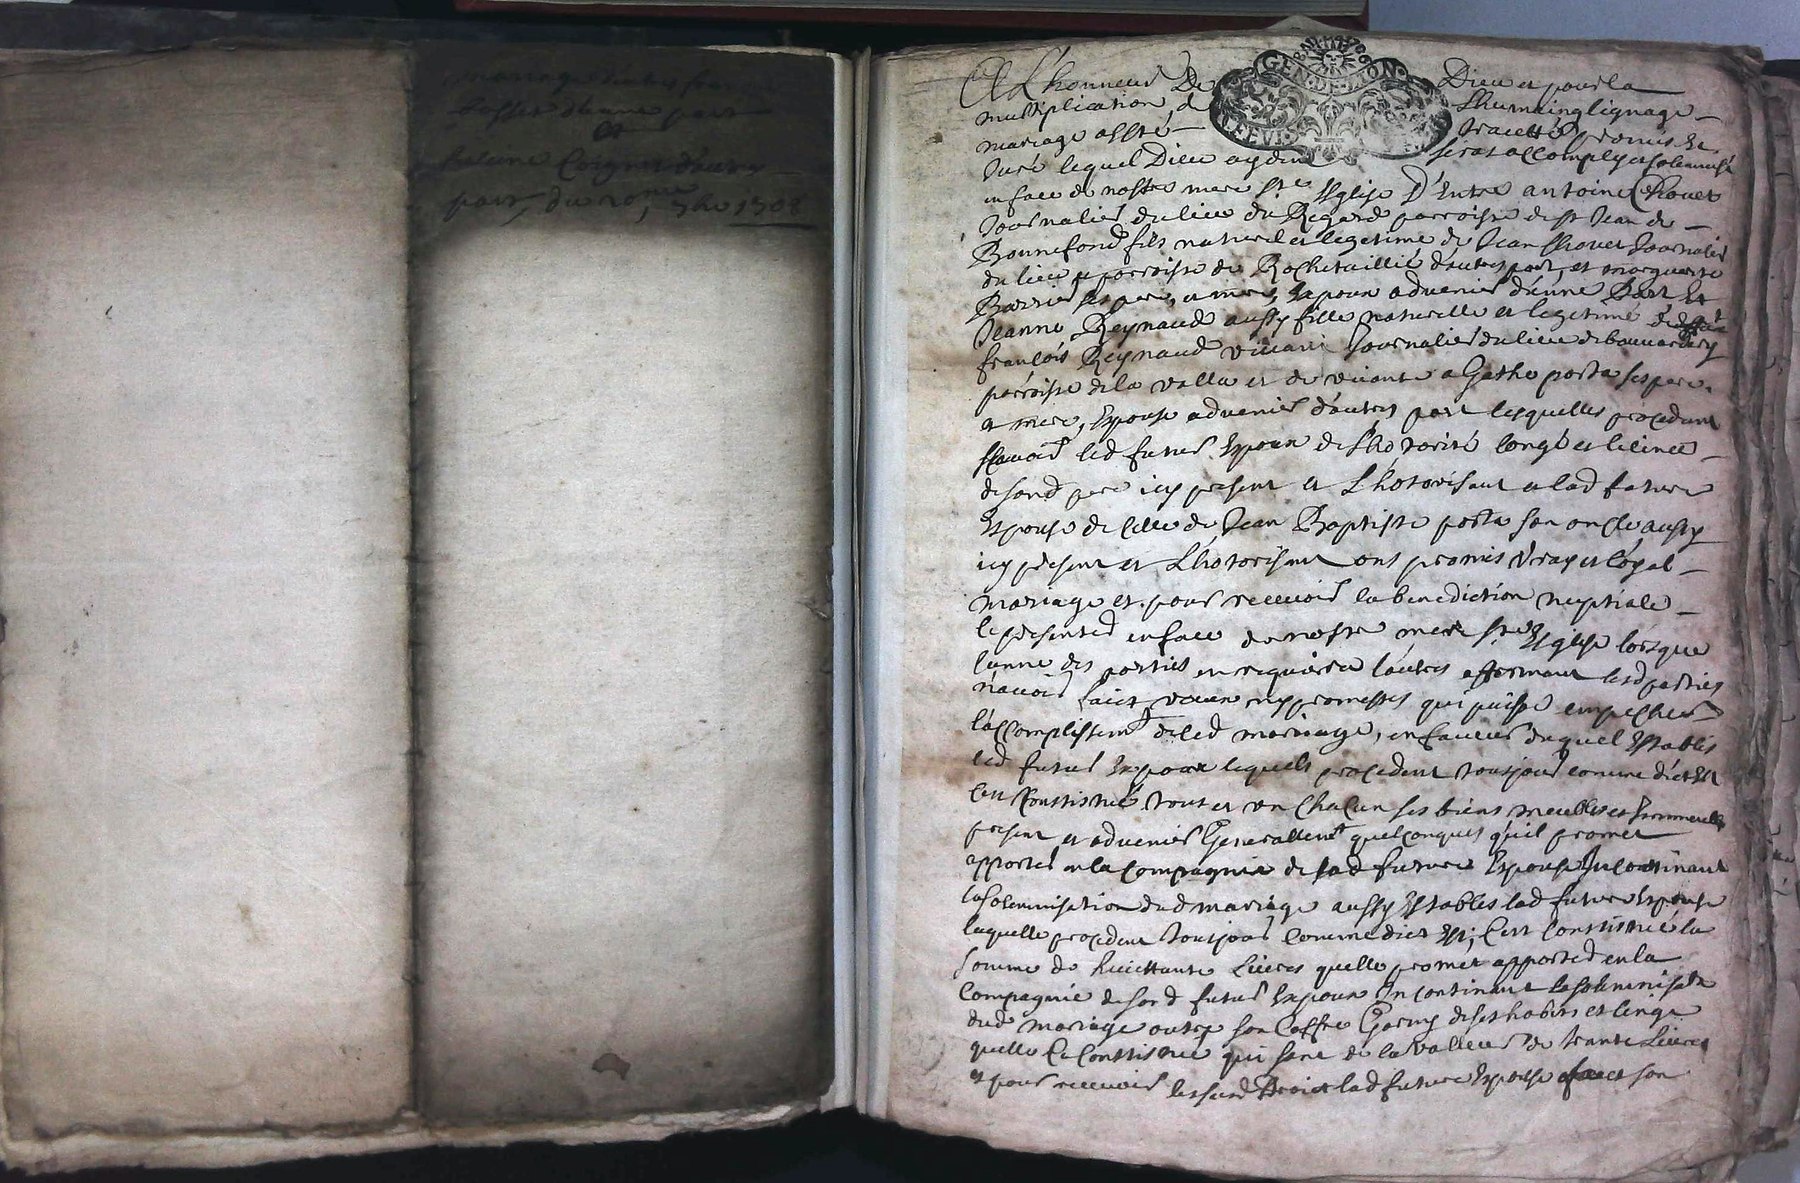 mariage
basset d'une part
et
part, du 20 7bre 1708
GEN·DE·MON
A L'honneur De Dieu et pour la
multiplication de L'humaing lignage
mariage a esté tracetté promis et
Juré lequel Dieu aydant serat accomply et solennisé
en face de nostre mere Ste Esglise D'Entre antoine Chovet
Journalier du lieu du Regard parroisse de st Jean de
Bonnefond fils naturel et legetime de Jean Chovet Journalier
du lieu et parroisse de Rochetaillié d'autre part, et marguerite
Barrier ses pere, et mere, Expoux advenir d'une Part Et
Jeanne Reynaud aussy fille naturelle et legetime de
françois Reynaud vivant Journalier du lieu de
parroisse de la valla et de vivante agathe porta ses pere
et mere, Expouse advenir d'autre part lesquelles procedant
scavoir led futur Expoux de Lhotorité congé et licence
de sond pere icy present et Lhotorisant et lad future
Expouse de celle de Jean Baptiste porta son oncle aussy
icy present et Lhotorisant ont promis vray et loyal
mariage et pour recevoir la benediction nuptiale
le presenter en face de nostre mere ste Esglise lorsque
l'unne des parties en requierra l'autre affermant lesd parties
n'avoir faict vœux ny promesses qui puisse empecher
l'accomplissemt deled mariage, en faveur duquel Establis
led futur Expoux lequels procedent tousjour comme dict Est
c'est Constistué tout et un chacun ses biens meubles et Immeubles
present et advenir Generallemt quelconques qu'il promet
apporter en la Compagnie de sad future Expouse Incontinant
la solemnisation dud mariage aussy Establies lad future Expouse
laquelle procedent tousjour comme dict Est, c'est Constistué la
somme de huictante Livres quelle promet apporter en la
Compagnie de sond futur Expoux Incontinant la solemnisaon
dud mariage outre son Coffre Garny de ses habits et linge
quelle ce Constistue qui sont de la valleur de trante Livres
et pour recevoir les susd droict lad future Expouse son